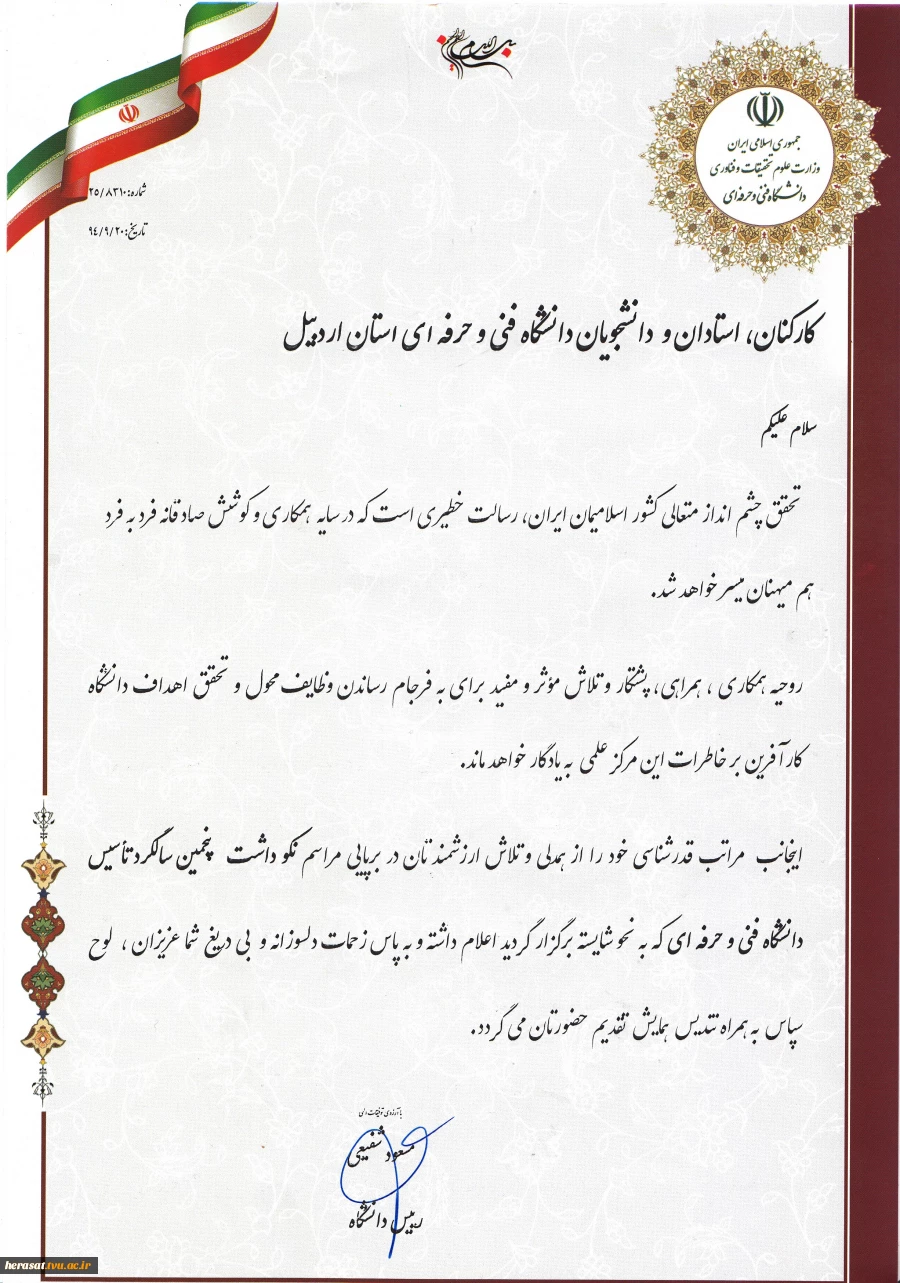 بسم الله الرحمن الرحیم
جمهوری اسلامی ایران
وزارت علوم تحقیقات و فناوری
دانشگاه فنی و حرفه‌ای
شماره: ۲۵/۸۳۱۰
تاریخ: ۹۴/۹/۲۰
کارکنان، استادان و دانشجویان دانشگاه فنی و حرفه ای استان اردبیل
سلام علیکم
تحقق چشم انداز متعالی کشور اسلامیمان ایران، رسالت خطیری است که در سایه همکاری و کوشش صادقانه فرد به فرد
هم میهنان میسر خواهد شد.
روحیه همکاری ، همراهی، پشتکار و تلاش مؤثر و مفید برای به فرجام رساندن وظایف محول و تحقق اهداف دانشگاه
کارآفرین بر خاطرات این مرکز علمی به یادگار خواهد ماند.
اینجانب مراتب قدرشناسی خود را از همدلی و تلاش ارزشمندتان در برپایی مراسم نکو داشت پنجمین سالگرد تأسیس
دانشگاه فنی و حرفه ای که به نحو شایسته برگزار گردید اعلام داشته و به پاس زحمات دلسوزانه و بی دریغ شما عزیزان ، لوح
سپاس به همراه تندیس همایش تقدیم حضورتان می گردد.
با آرزوی توفیقات الهی
مسعود شفیعی
رییس دانشگاه
herasat.tvu.ac.ir